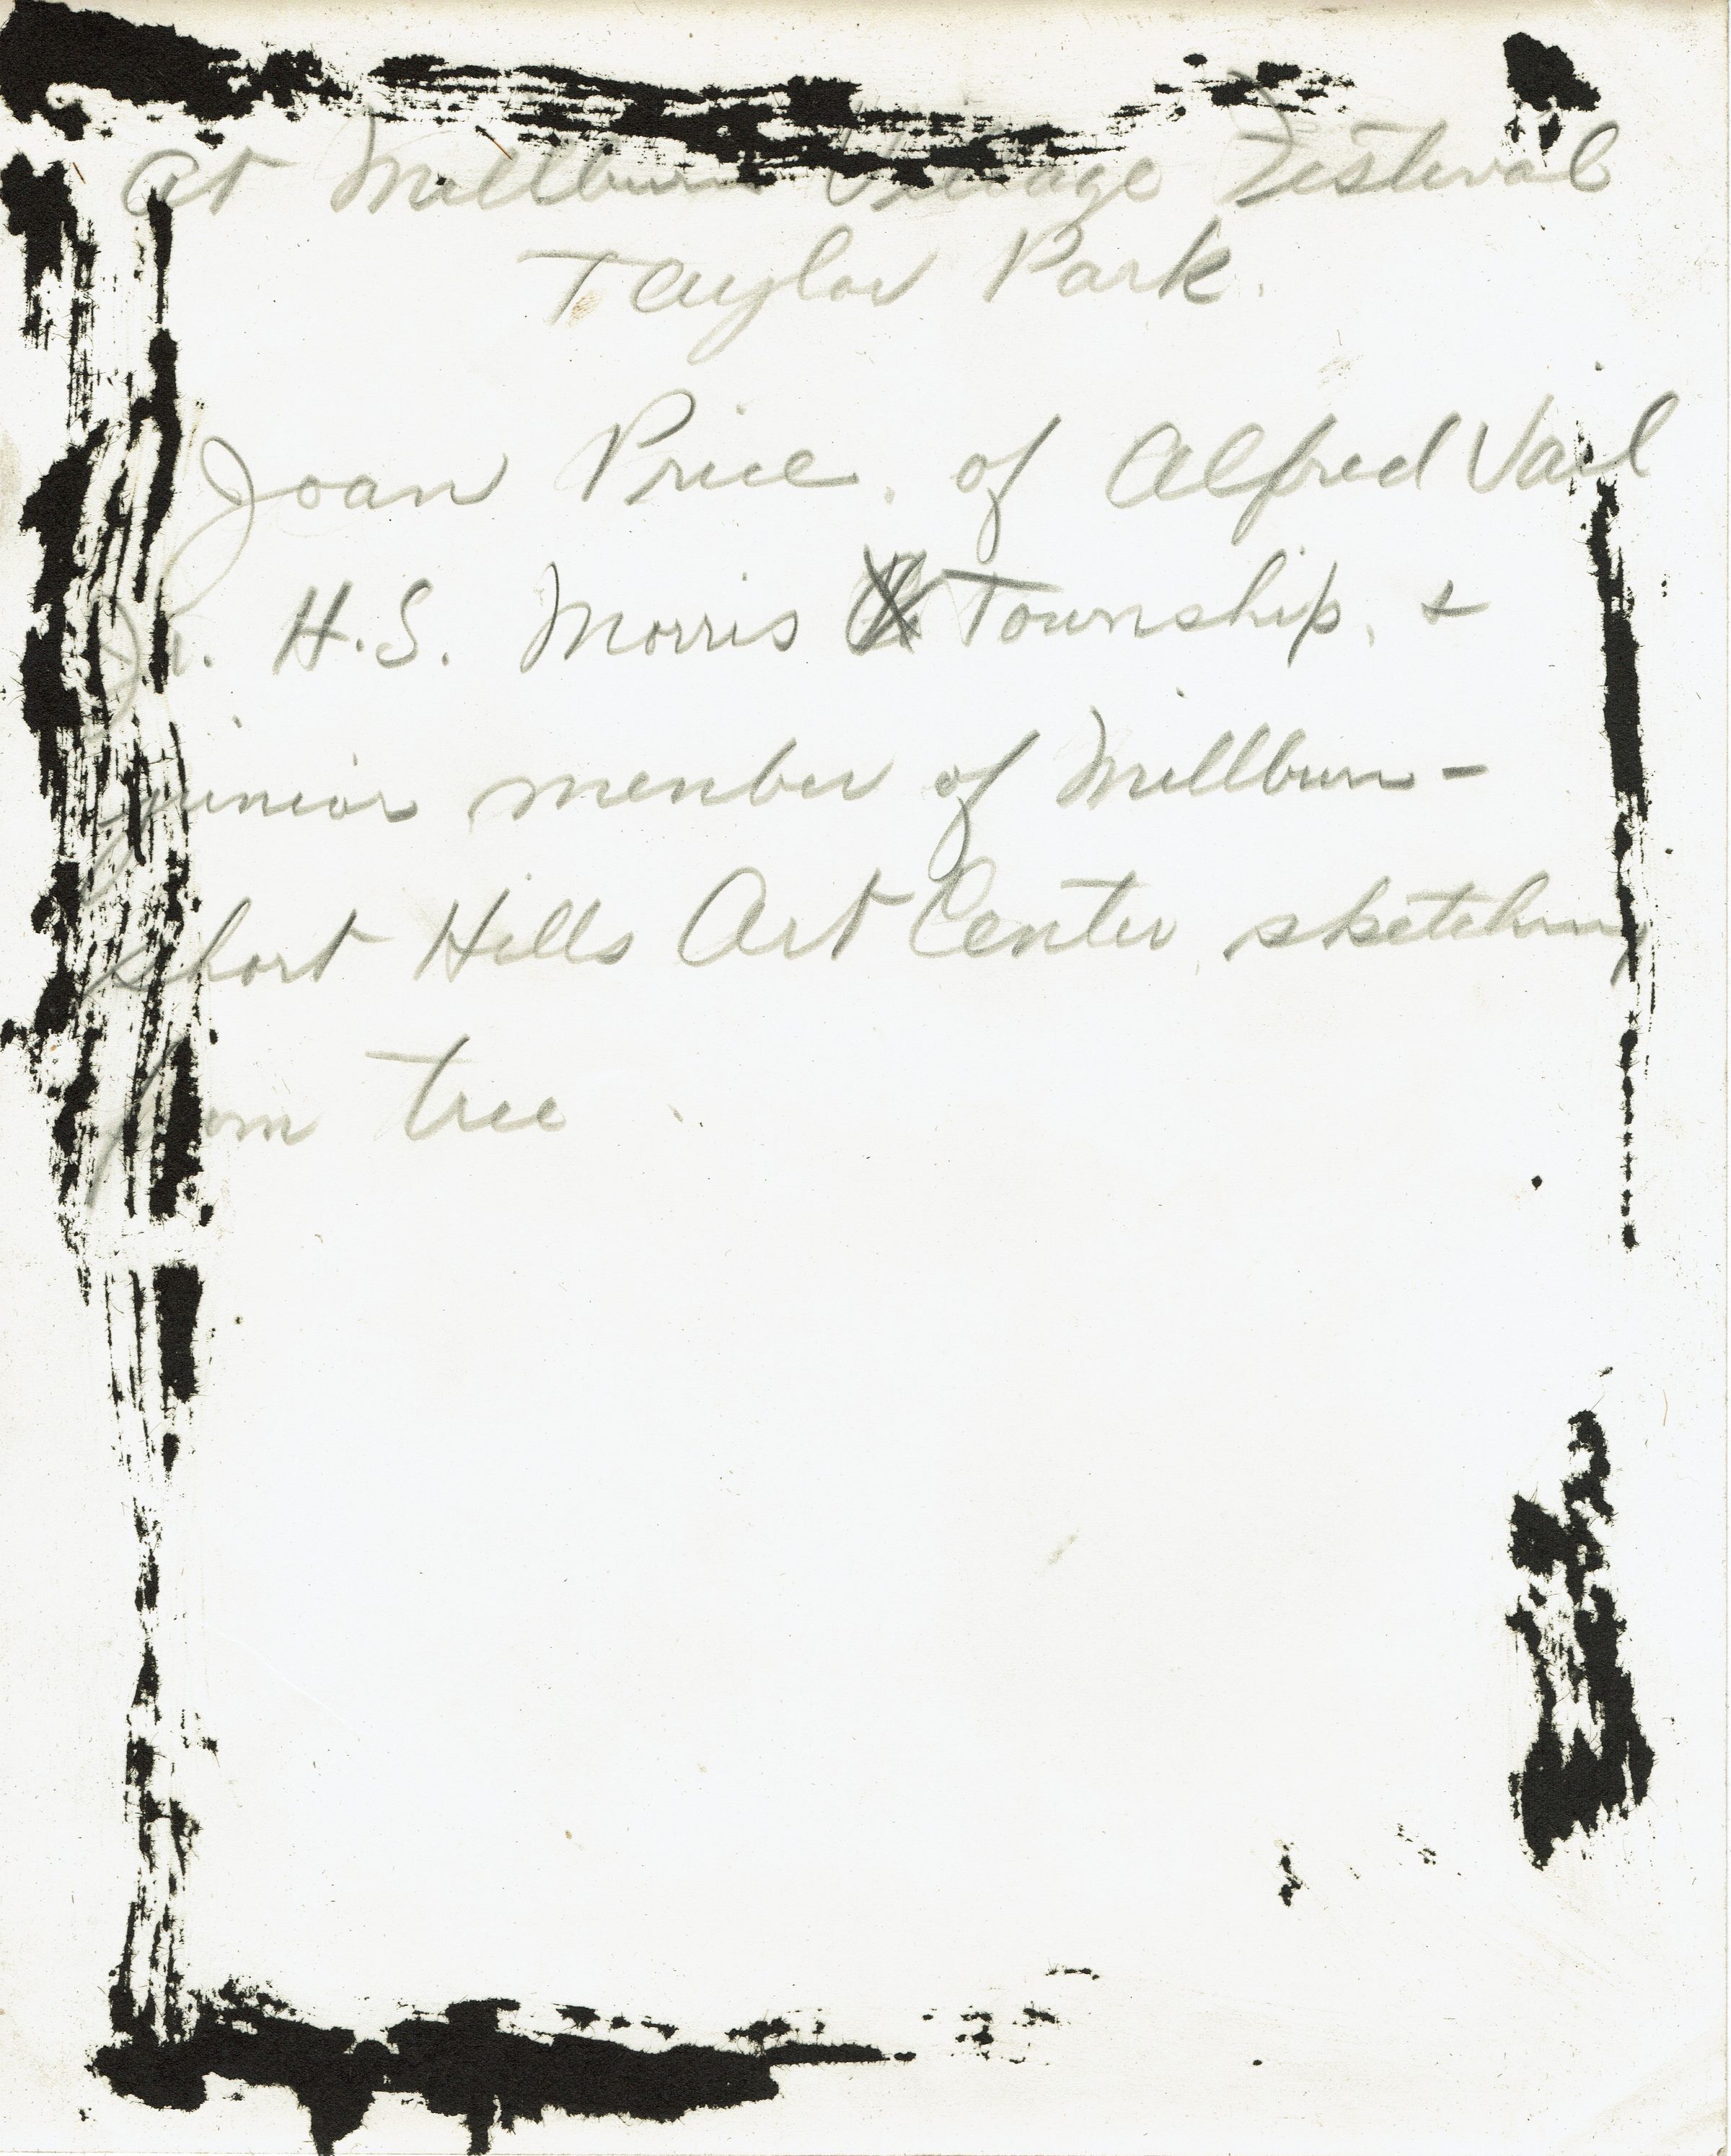 At Millburn Village Festival
Taylor Park.
Joan Price, of Alfred Vail
Jr. H.S. Morris Township, &
junior member of Millburn-
Short Hills Art Center, sketching
from tree